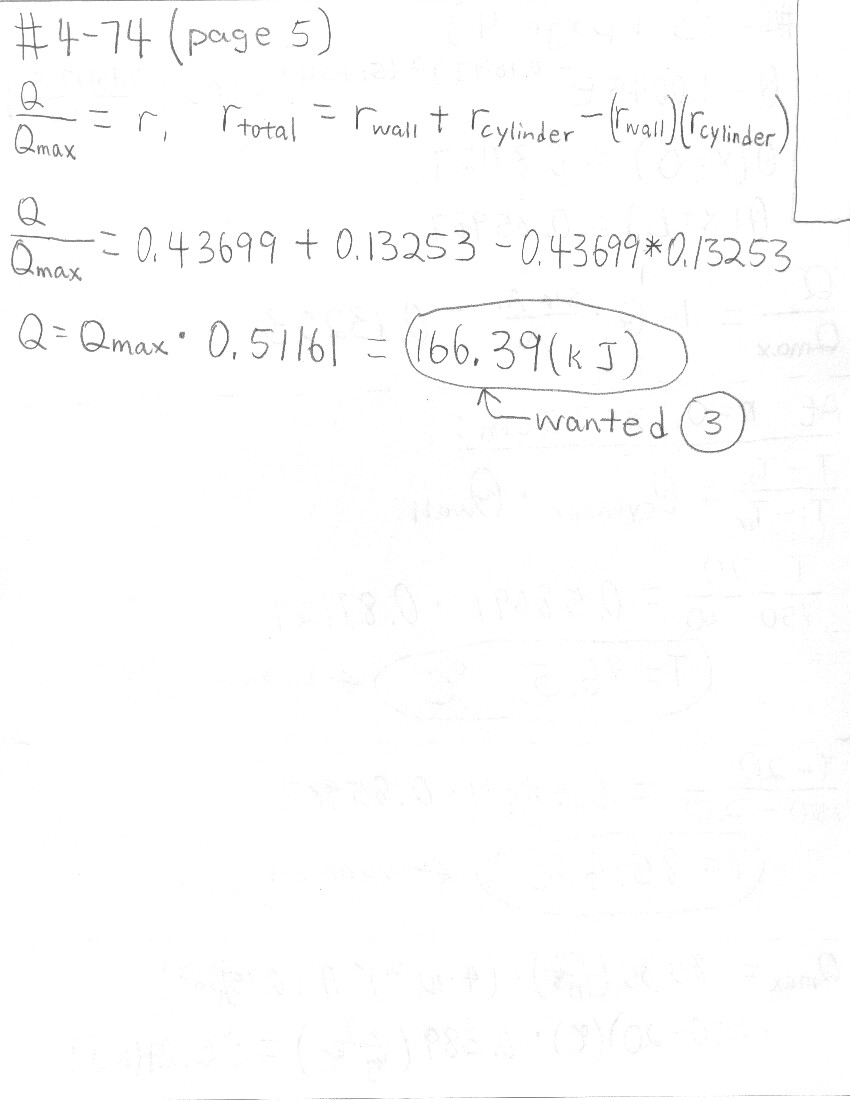 #4-74 (page 5)
Q/Qmax = r, rtotal = rwall + rcylinder - (rwall)(rcylinder)
Q/Qmax = 0.43699 + 0.13253 - 0.43699*0.13253
Q = Qmax · 0.51161 = 166.39 (kJ)
wanted 3